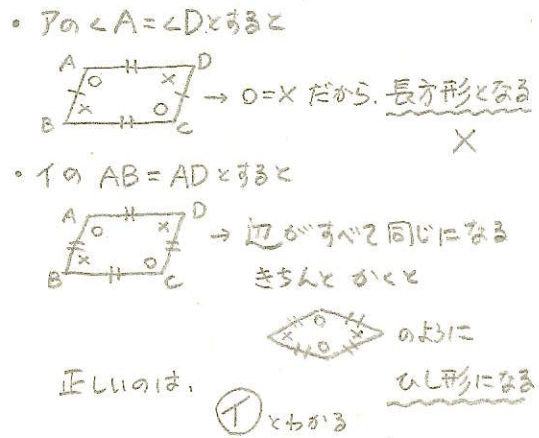 ・アの∠A=∠Dとすると
A D
B C
→ ○=× だから、長方形となる
×
・イの AB=ADとすると
A D
B C
→ 辺がすべて同じになる
きちんと かくと
のように
正しいのは、 ひし形になる
イ とわかる